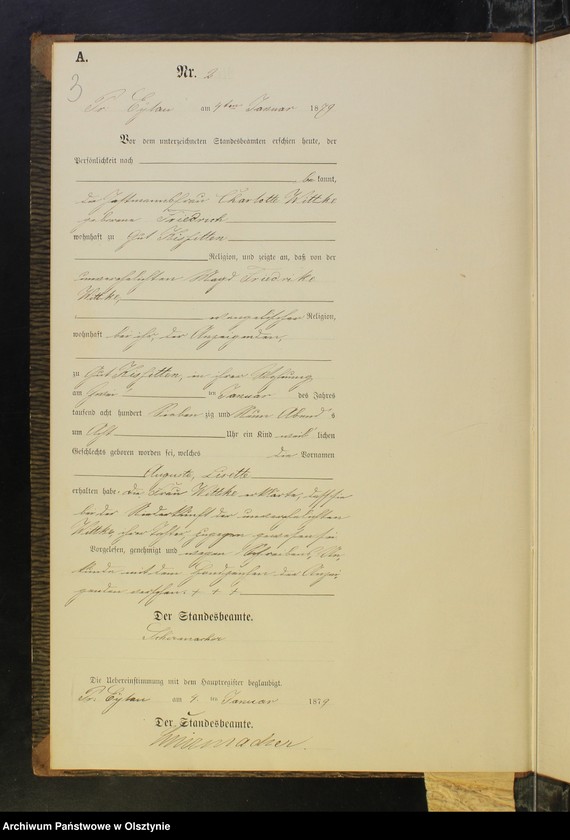 A.
3
Nr. 2
Pr. Eylau am 4ten Januar 1879
Vor dem unterzeichneten Standesbeamten erschien heute, der
Persönlichkeit nach
bekannt,
die Charlotte Wittke
geborene Friedrich
wohnhaft zu Gut
Religion, und zeigte an, daß von der
unverehelichten Magd Friedrike
Wittke,
evangelischer Religion,
wohnhaft bei ihr, der Anzeigenden,
zu Gut in ihrer Wohnung
am ten Januar des Jahres
tausend acht hundert sieben zig und Neun Abends
um Acht Uhr ein Kind weib lichen
Geschlechts geboren worden sei, welches die Vornamen
Auguste, Lisette
erhalten habe. Die Frau Wittke erklärte, daß sie
bei der Niederkunft der unverehelichten
Wittke, ihrer Tochter, zugegen gewesen sei
Vorgelesen, genehmigt und wegen
mit dem Handzeichen der Anzei-
genden versehen. + + +
Der Standesbeamte.
Die Uebereinstimmung mit dem Hauptregister beglaubigt.
Pr. Eylau am 4. ten Januar 1879
Der Standesbeamte.
Archiwum Państwowe w Olsztynie